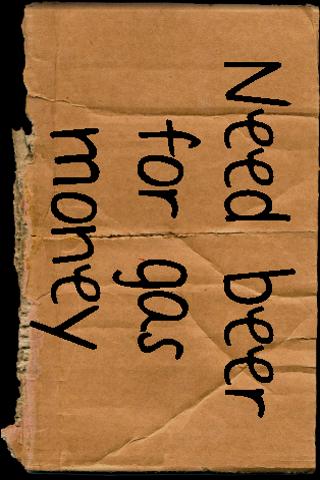 Need beer
for gas
money